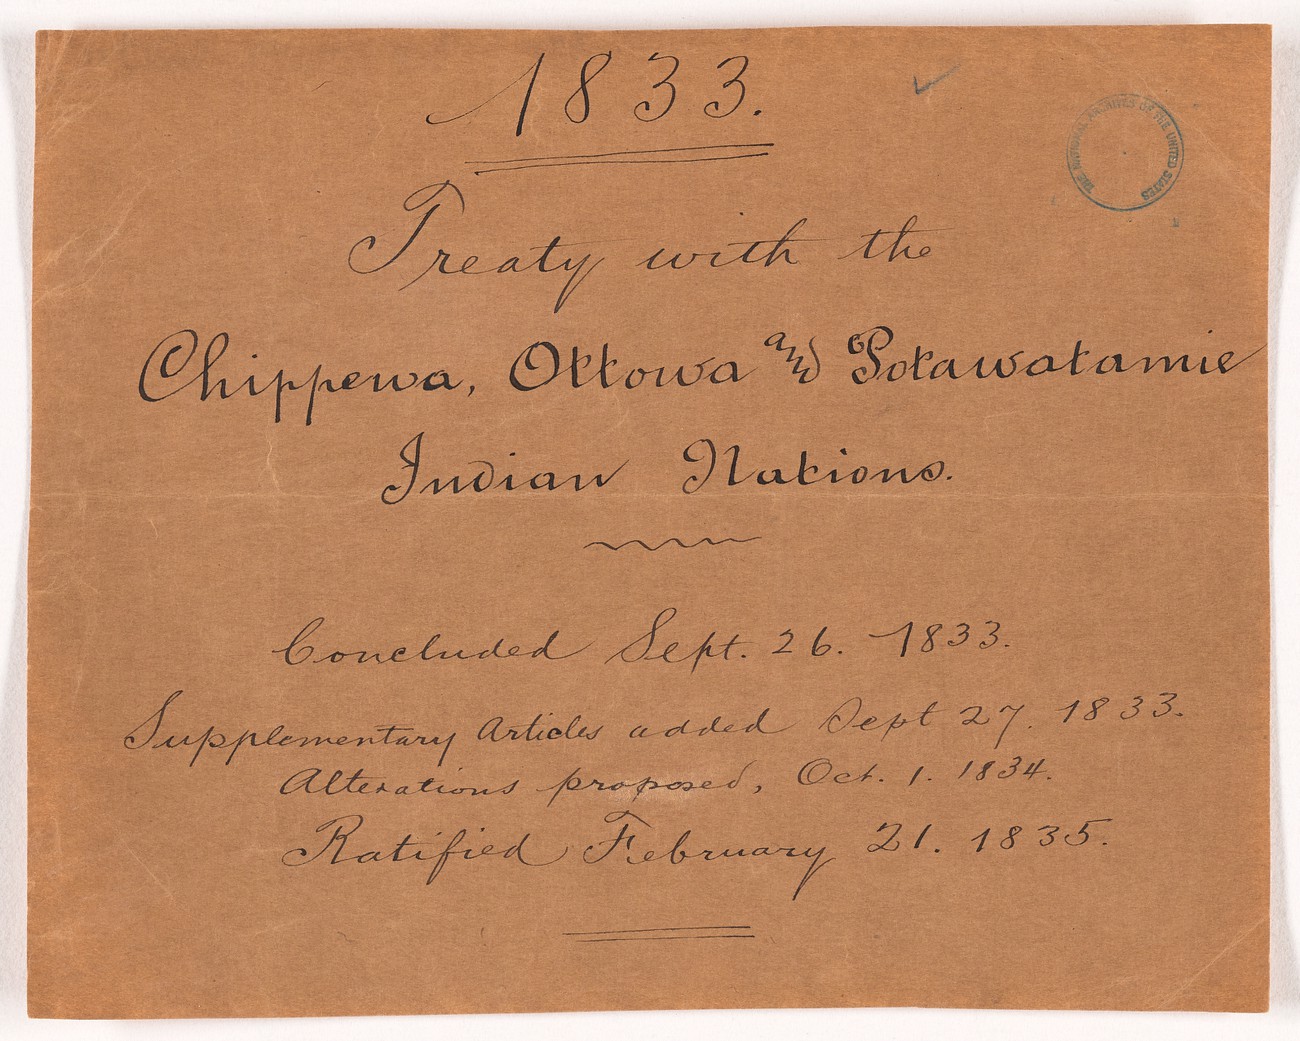 1833.
THE NATIONAL ARCHIVES OF THE UNITED STATES
Treaty with the
Chippewa, Ottowa and Potawatamie
Indian Nations.
Concluded Sept. 26. 1833.
Supplementary Articles added Sept 27. 1833.
Alterations proposed, Oct. 1. 1834.
Ratified February 21. 1835.